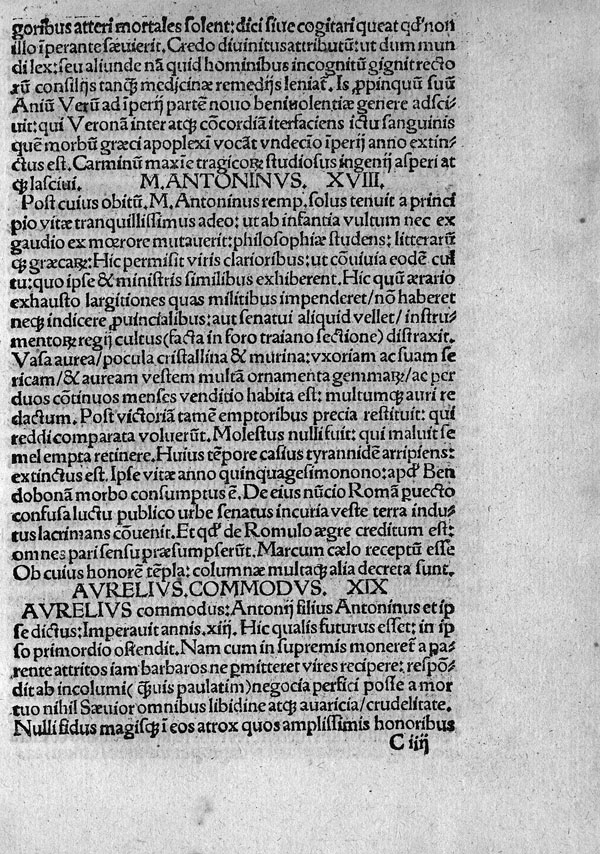 goribus atteri mortales solent: dici siue cogitari queat qď non
illo īperante sæuierit. Credo diuinitus attributū: ut dum mun
di lex: seu aliunde nā quid hominibus incognitū gignit recto
rū consilijs tanꝙ̃ medicinæ remedijs leniat̃. Is ꝓpinquū suū
Aniū Verū ad īperij partē nouo beniuolentiæ genere adsci⸗
uit: qui Veronā inter atqꝫ cōcordiā iterfaciens ictu sanguinis
quē morbū græci apoplexī vocāt vndecīo īperij anno extin⸗
ctus est. Carminū maxīe tragicoꝝ studiosus ingenij asperi at
qꝫ lasciui. M. ANTONINVS. XVIII.
Post cuius obitū. M. Antoninus remp. solus tenuit a princi
pio vitæ tranquillissimus adeo: ut ab infantia vultum nec ex
gaudio ex mœrore mutauerit: philosophiæ studens: litterarū
qꝫ græcaꝝ: Hic permisit viris clarioribus: ut cōuiuia eodē cul
tu: quo ipse & ministris similibus exhiberent. Hic quū ærario
exhausto largitiones quas militibus impenderet/ nō haberet
neqꝫ indicere ꝓuincialibus: aut senatui aliquid vellet/ instru⸗
mentoꝝ regij cultus (facta in foro traiano sectione) distraxit.
Vasa aurea/ pocula cristallina & murina: vxoriam ac suam se
ricam/ & auream vestem multā ornamenta gemmaꝝ/ ac per
duos cōtinuos menses venditio habita est: multumqꝫ auri re
dactum. Post victoriā tamē emptoribus precia restituit: qui
reddi comparata voluerūt. Molestus nulli fuit: qui maluit se
mel empta retinere. Huius tēpore casius tyrannidē arripiens:
extinctus est. Ipse vitæ anno quinquagesimonono: apď Ben
dobonā morbo consumptus ē. De eius nūcio Romā puecto
confusa luctu publico urbe senatus incuria veste terra indu⸗
tus lacrimans cōuenit. Et qď de Romulo ægre creditum est:
omnes pari sensu præsumpserūt. Marcum cælo receptū esse
Ob cuius honorē tēpla: columnæ multaqꝫ alia decreta sunt.
AVRELIVS. COMMODVS. XIX
AVRELIVS commodus: Antonij filius Antoninus et ip
se dictus: Imperauit annis. xiij. Hic qualis futurus esset: in ip
so primordio ostendit. Nam cum in supremis moneret̃ a pa⸗
rente attritos iam barbaros ne ꝑmitteret vires recipere: respō⸗
dit ab incolumi ( ꝙ̃uis paulatim) negocia perfici posse a mor
tuo nihil Sæuior omnibus libidine atqꝫ auaricia/ crudelitate.
Nulli fidus magisqꝫ ī eos atrox quos amplissimis honoribus
C iiij